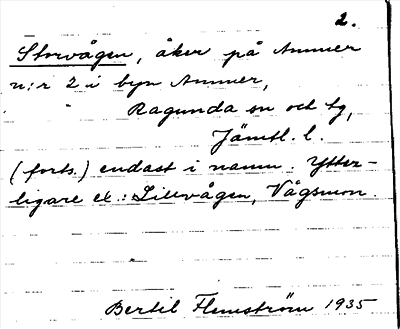 2.
Storvågen, åker på Ammer
n:r 2 i byn Ammer,
Ragunda sn och tg,
Jämtl. l.
(forts.) endast i namn. Ytter-
ligare ex.: Lillvågen, Vågsmon.
Bertil Flemström 1935